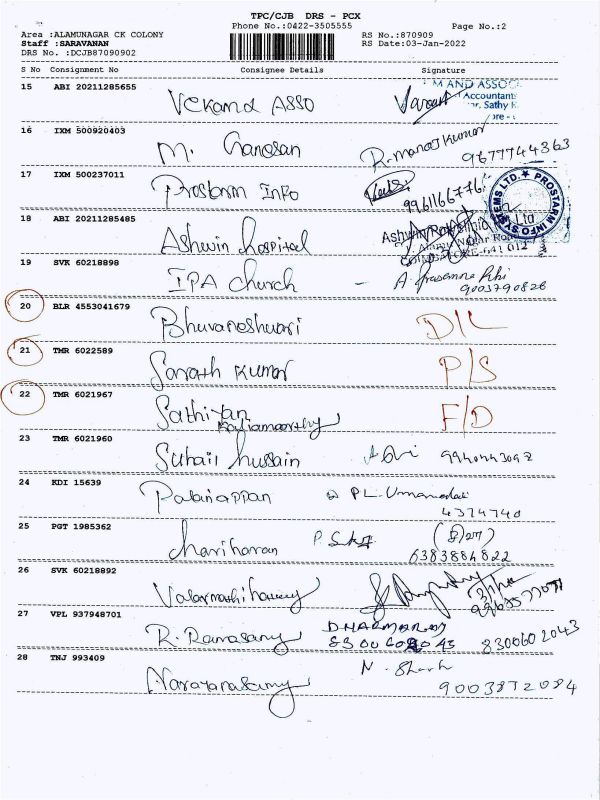 TPC/CJB DRS - PCX
Phone No.:0422-3505555 Page No.:2
Area :ALAMUNAGAR CK COLONY RS No.:870909
Staff :SARAVANAN RS Date:03-Jan-2022
DRS No. :DCJB87090902
S No Consignment No Consignee Details Signature
15 ABI 20211285655 Vekamd ASSO
M AND ASSOC
Accountant
Sathy
16 IXM 500920403 M. Ganesan R. manoj kumar
9677744363
17 IXM 500237011 Prostarm Info
9961166776
PROSTARM INFO SYSTEMS LTD.
18 ABI 20211285485 Ashwin hospital
19 SVK 60218898 IPA church - A Prasanna
9003790826
20 BLR 4553041679 Bhuvaneshwari D/L
21 TMR 6022589 Sarath Kumar P/S
22 TMR 6021967 Sathiyan F/D
Kaliamoorthy
23 TMR 6021960 Suhail hussain
24 KDI 15639 Palaniappan PL. Umamadai
4374740
25 PGT 1985362 hariharan
6383884822
26 SVK 60218892
27 VPL 937948701 R. Ramasamy DHARMARAJ
8300602043 8300602043
28 TNJ 993409 Narayanasamy
9003872084